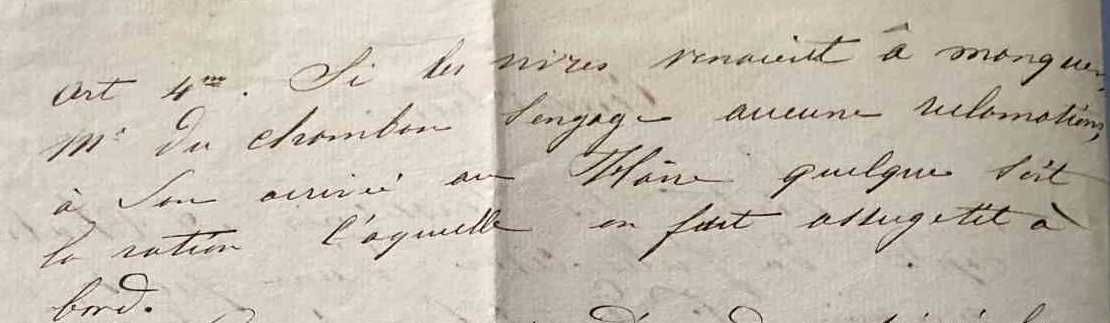 Art 4me. Si les vivres venaient à manquer,
Mr du chambon S'engage aucune reclamations,
à Son arrivée au Hâvre quelque Soit
la ration l'aquelle on fut assugetit à
bord.